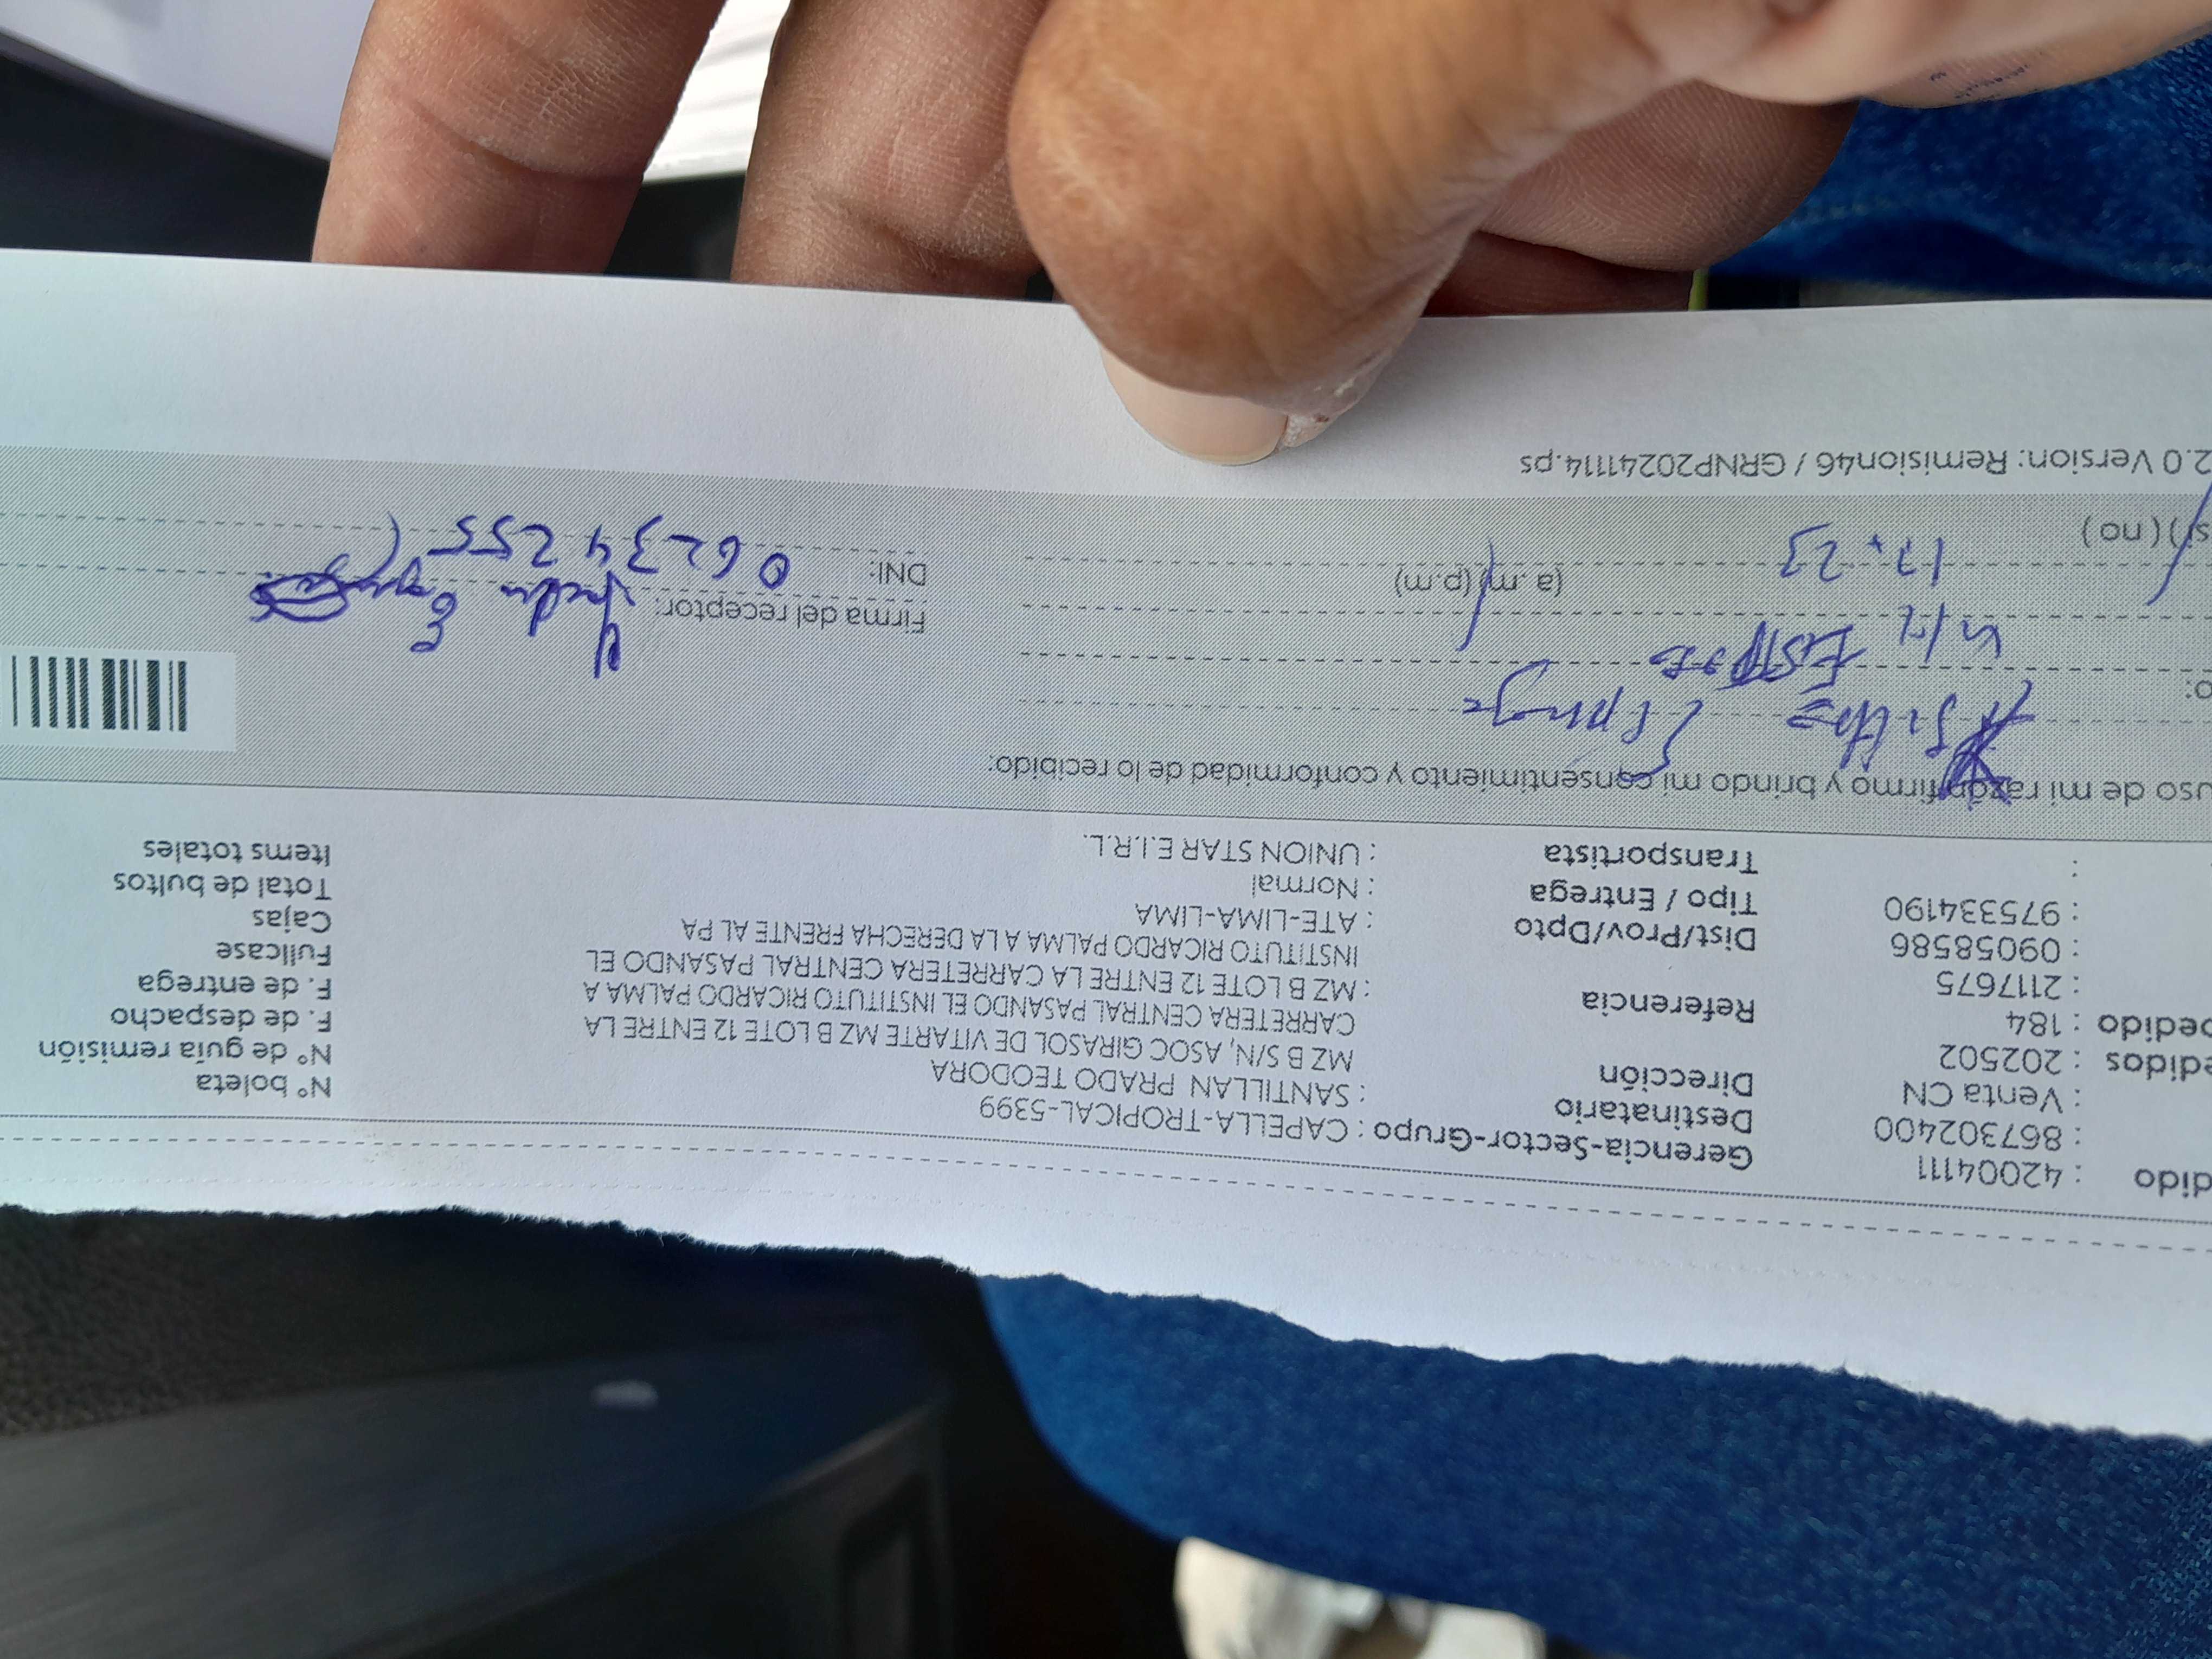 dido : 42004111 Gerencia-Sector-Grupo : CAPELLA-TROPICAL-5399
: 867302400 Destinatario : SANTILLAN PRADO TEODORA N° boleta
: Venta CN Dirección MZ B S/N, ASOC GIRASOL DE VITARTE MZ B LOTE 12 ENTRE LA N° de guía remisión
edidos : 202502 CARRETERA CENTRAL PASANDO EL INSTITUTO RICARDO PALMA A F. de despacho
pedido : 184 Referencia : MZ B LOTE 12 ENTRE LA CARRETERA CENTRAL PASANDO EL F. de entrega
: 2117675 INSTITUTO RICARDO PALMA A LA DERECHA FRENTE AL PA Fullcase
: 09058586 Dist/Prov/Dpto : ATE-LIMA-LIMA Cajas
: 975334190 Tipo / Entrega : Normal Total de bultos
: Transportista : UNION STAR E.I.R.L. Items totales
uso de mi razón firmo y brindo mi consentimiento y conformidad de lo recibido:
o:
Firma del receptor:
(a. m) (p.m) DNI: 06234255
si) (no) 17:23
2.0 Version: Remision46 / GRNP20241114.ps